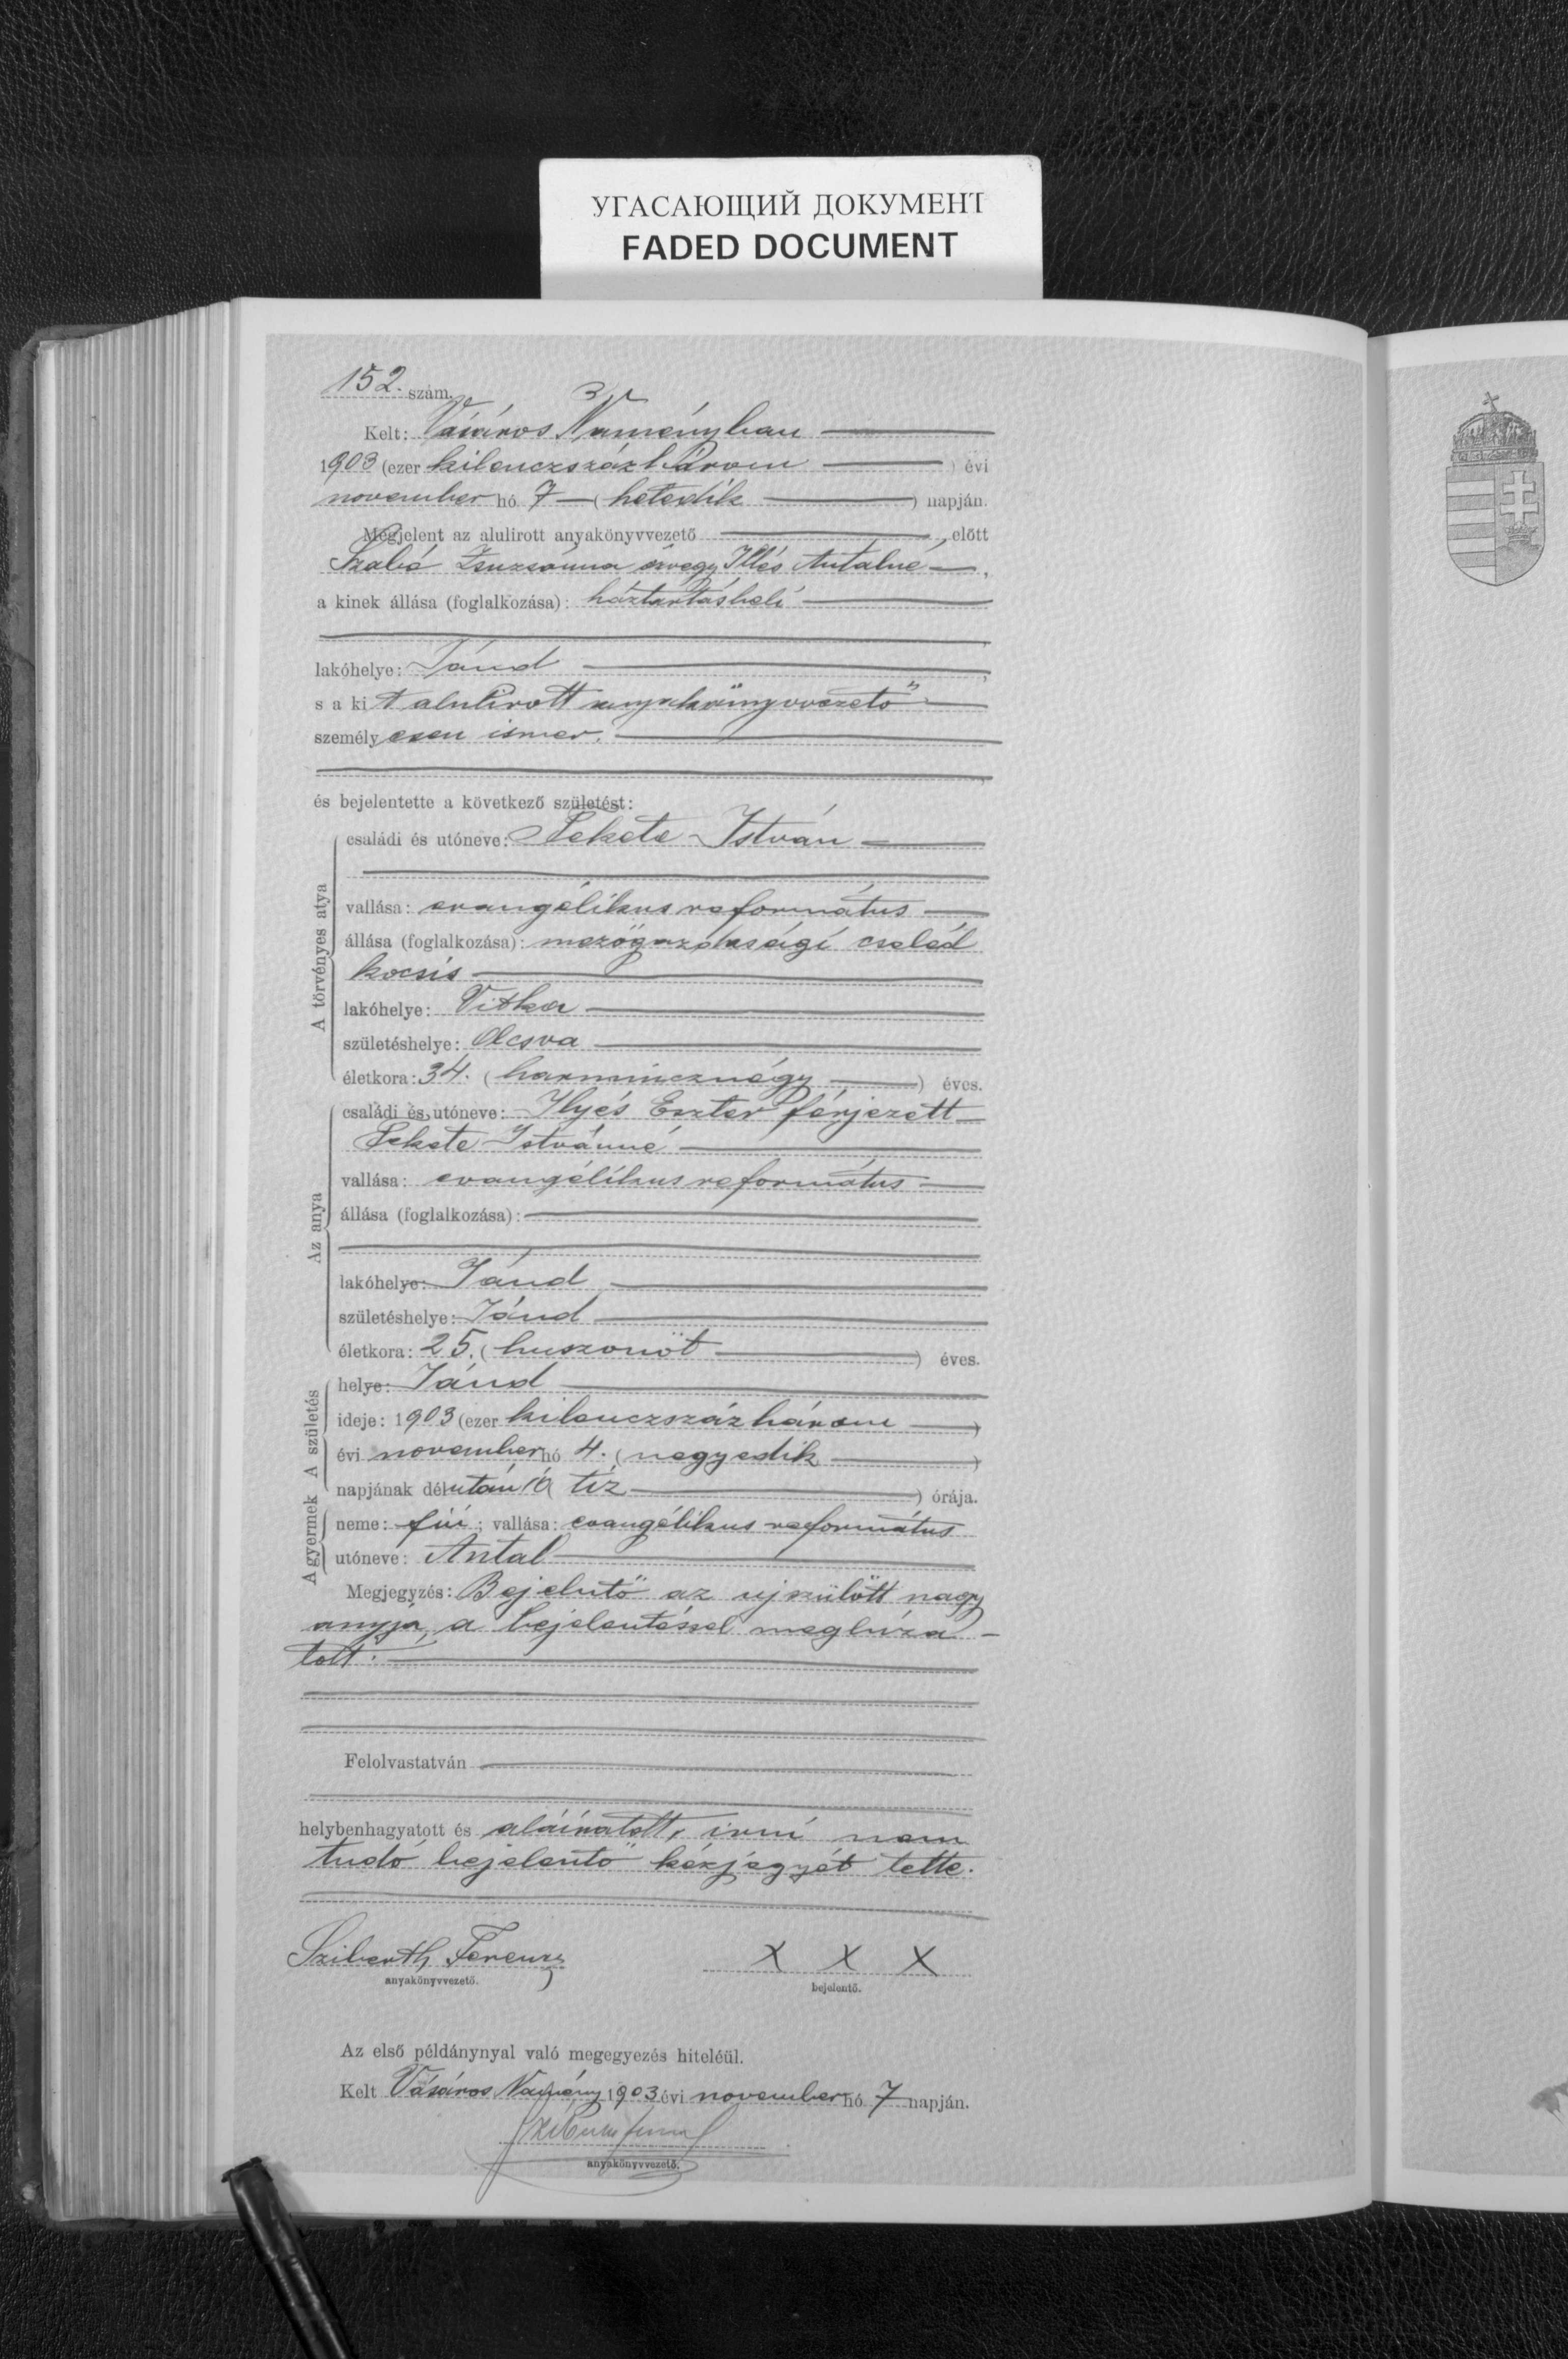 УГАСАЮЩИЙ ДОКУМЕНТ
FADED DOCUMENT
152. szám.
Kelt: Vásáros Naményban
1903 (ezer kilenczszázhárom) évi
november hó 7 (hetedik) napján.
Megjelent az alulirott anyakönyvvezető előtt
Szabó Zsuzsánna özvegy Illés Antalné,
a kinek állása (foglalkozása): háztartásbeli
lakóhelye: Jánd,
s a kit alulirott anyakönyvvezető
személyesen ismer.
és bejelentette a következő születést:
A törvényes atya
családi és utóneve: Fekete István
vallása: evangélikus református
állása (foglalkozása): mezőgazdasági cseléd
kocsis
lakóhelye: Vitka
születéshelye: Olcsva
életkora: 34. (harmincznégy) éves.
Az anya
családi és utóneve: Ilyés Eszter férjezett
Fekete Istvánné
vallása: evangélikus református
állása (foglalkozása):
lakóhelye: Jánd
születéshelye: Jánd
életkora: 25. (huszonöt) éves.
A születés
helye: Jánd
ideje: 1903 (ezer kilenczszázhárom)
évi november hó 4. (negyedik)
napjának délután 10 (tíz) órája.
A gyermek
neme: fiú; vallása: evangélikus református
utóneve: Antal
Megjegyzés: Bejelentő az ujszülött nagy
anyja, a bejelentéssel megbíza-
tott.
Felolvastatván
helybenhagyatott és aláíratott, irni nem
tudó bejelentő kézjegyét tette.
Sziberth Ferencz X X X
anyakönyvvezető. bejelentő.
Az első példánynyal való megegyezés hiteléül.
Kelt Vásáros Namény 1903 évi november hó 7 napján.
anyakönyvvezető.